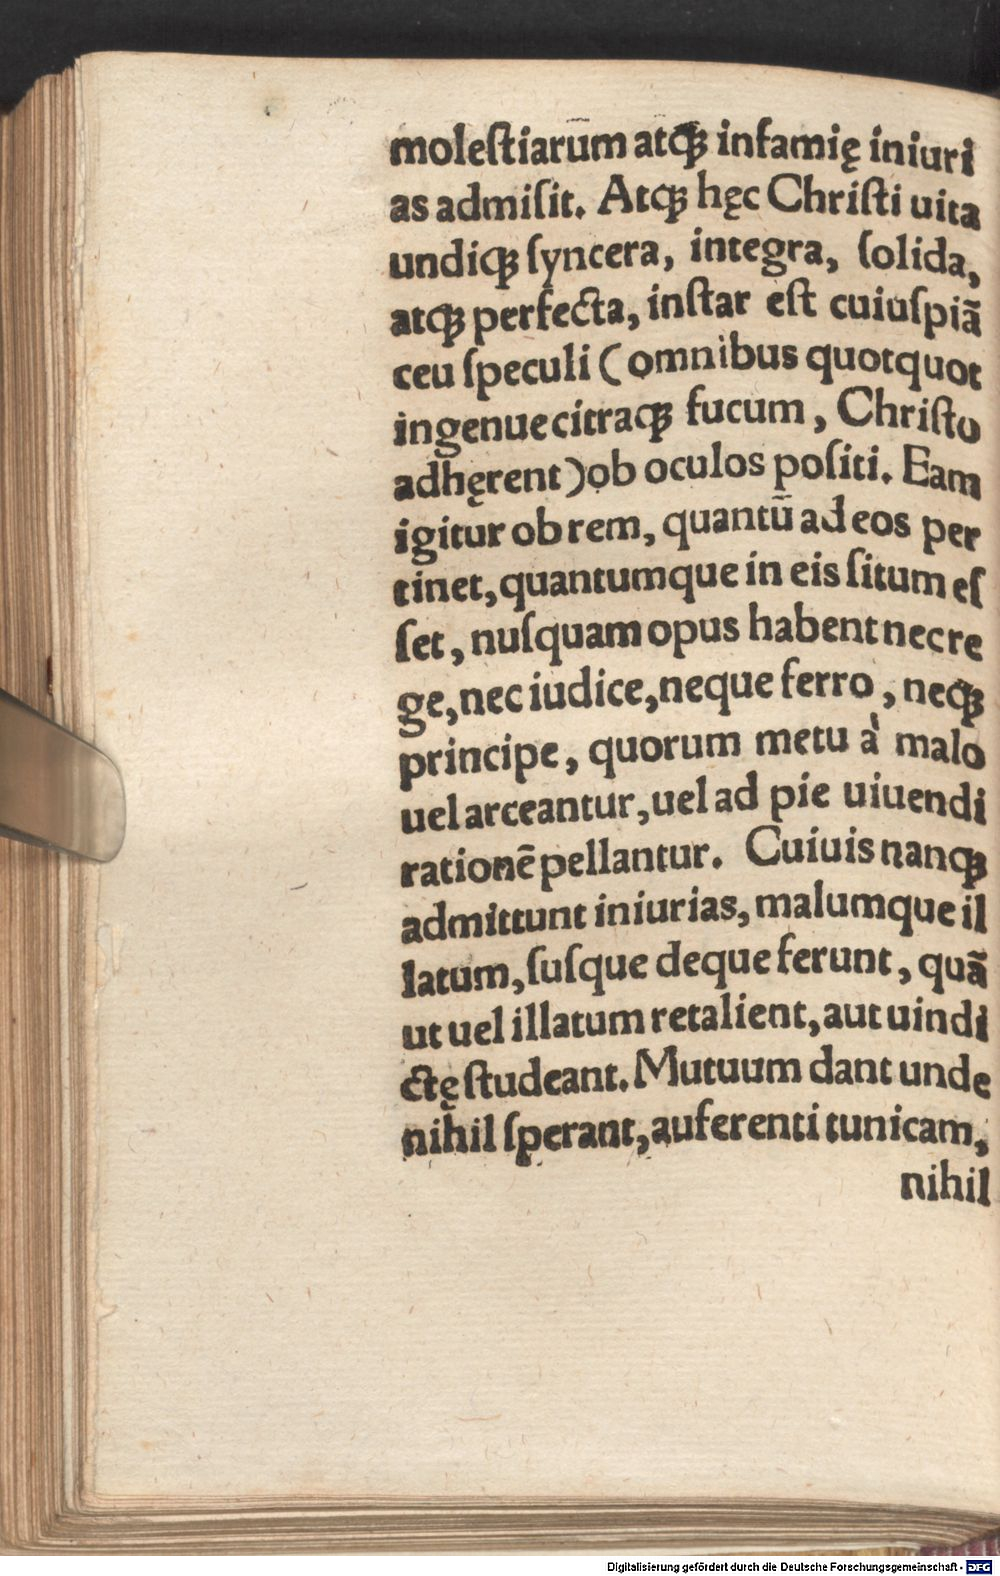 moleſtiarum atqꝫ infamię iniuri
as admiſit. Atqꝫ hęc Chriſti uita
undiqꝫ ſyncera, integra, ſolida,
atqꝫ perfecta, inſtar eſt cuiuſpiã
ceu ſpeculi (omnibus quotquot
ingenue citraqꝫ fucum, Chriſto
adhęrent) ob oculos poſiti. Eam
igitur ob rem, quantũ ad eos per
tinet, quantumque in eis ſitum eſ
ſet, nuſquam opus habent nec re
ge, nec iudice, neque ferro, neqꝫ
principe, quorum metu à malo
uel arceantur, uel ad pie uiuendi
rationẽ pellantur. Cuiuis nanqꝫ
admittunt iniurias, malumque il
latum, ſuſque deque ferunt, quã
ut uel illatum retalient, aut uindi
ctę ſtudeant. Mutuum dant unde
nihil ſperant, auferenti tunicam,
nihil
Digitalisierung gefördert durch die Deutsche Forschungsgemeinschaft - DFG